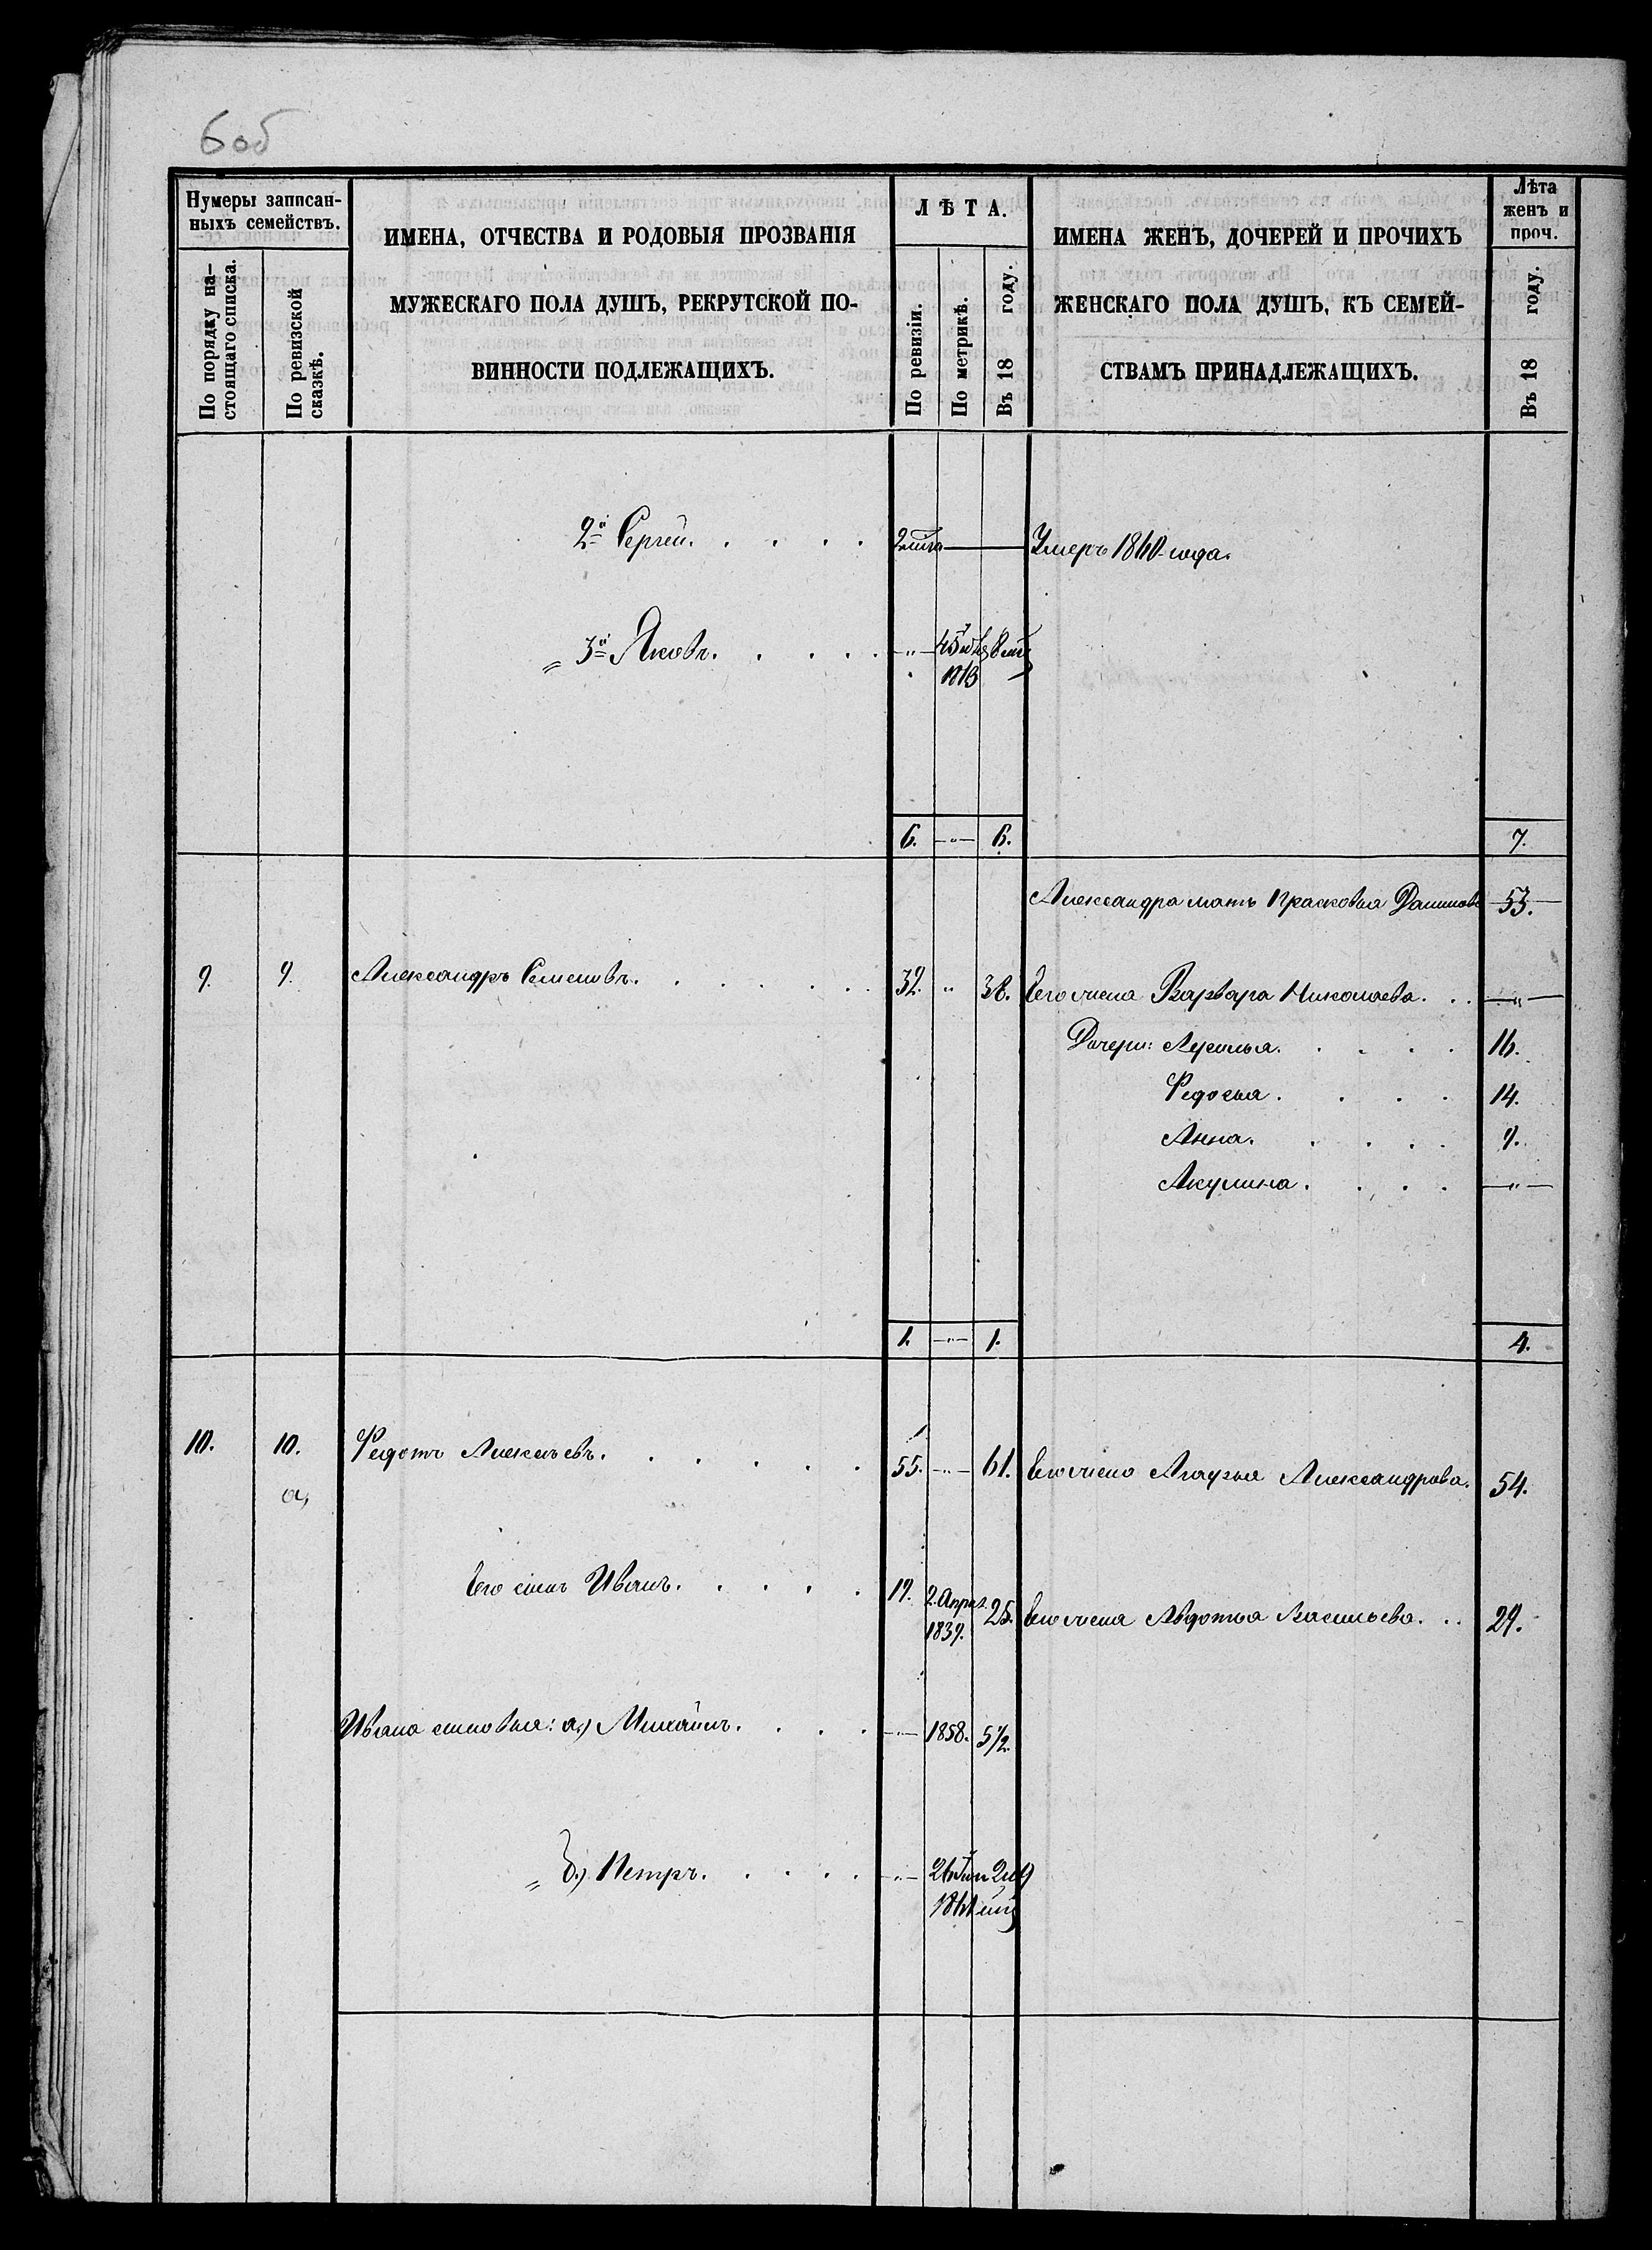 6об
Нумеры записан-
ныхъ семействъ.
По порядку на-
стоящаго списка.
По ревизской
сказкѣ.
ИМЕНА, ОТЧЕСТВА И РОДОВЫЯ ПРОЗВАНІЯ
МУЖЕСКАГО ПОЛА ДУШЪ, РЕКРУТСКОЙ ПО-
ВИННОСТИ ПОДЛЕЖАЩИХЪ.
ЛѢТА.
По ревизіи.
По метрикѣ.
Въ 18 году.
ИМЕНА ЖЕНЪ, ДОЧЕРЕЙ И ПРОЧИХЪ
ЖЕНСКАГО ПОЛА ДУШЪ, КЪ СЕМЕЙ-
СТВАМЪ ПРИНАДЛЕЖАЩИХЪ.
Лѣта
женъ и
проч.
Въ 18 году.
2й Сергей. Умеръ 1860 года.
" 3й Яковъ.
1863
6. -"- 6. 7.
Александра мать Прасковья 53.
9. 9. Александръ Семеновъ. 32. " 38. Его жена Варвара Николаева. -"-
Дочери: 16.
Федосья. 14.
Анна. 9.
Акулина. -"-
1. -"- 1. 4.
10. 10. Федотъ Алексѣевъ. 55. -"- 61. Его жена Александрова. 54.
а,
Его сынъ Иванъ. 19. 2. Апрѣл. 25. Его жена Авдотья Васильева. 29.
1839.
Ивана сыновья: а,) Михайла. -"- 1858. 5½.
" б,) Петръ. -"-
1861